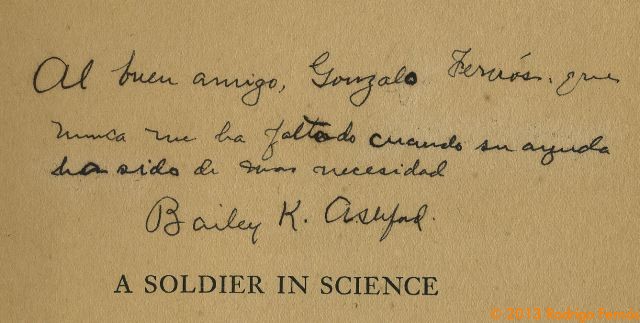 Al buen amigo, Gonzalo Ferrós, que
nunca me ha faltado cuando su ayuda
ha sido de mas necesidad
Bailey K. Ashford.
A SOLDIER IN SCIENCE
© 2013 Rodrigo Fernos